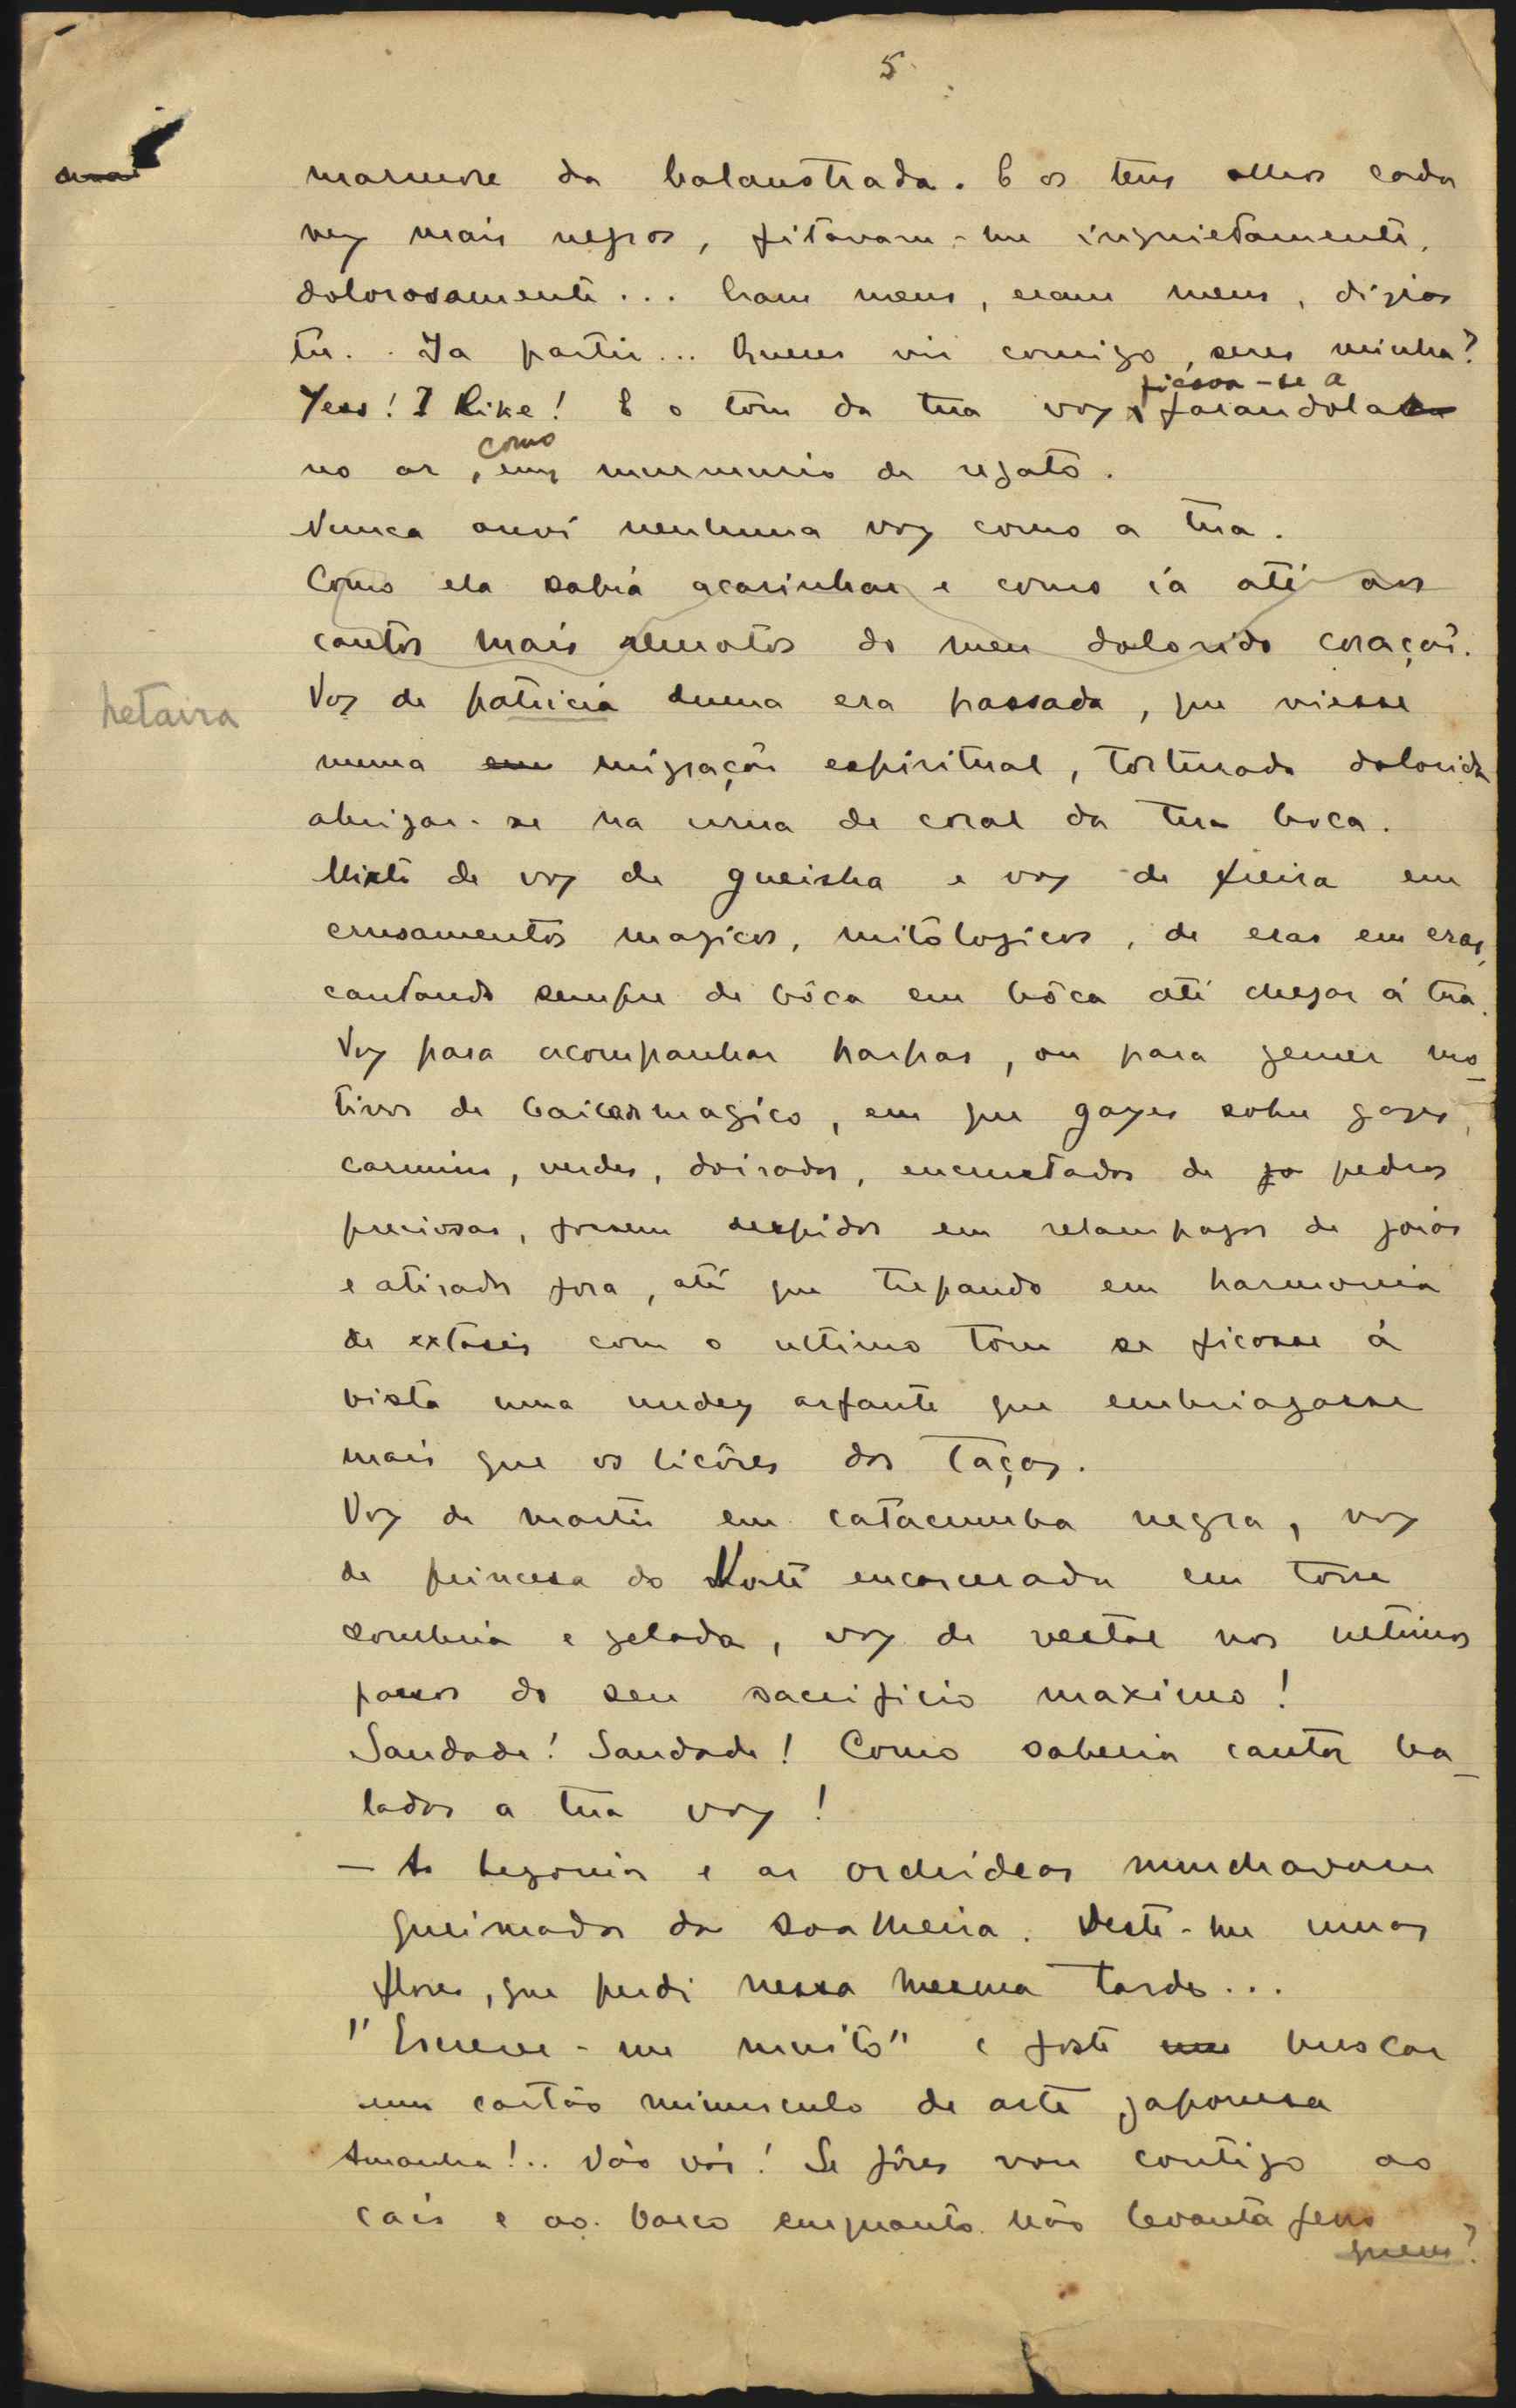 5
marmore da balaustrada. E os teus olhos cada
vez mais negros, fitavam-me inquietamente,
dolorosamente... Eram meus, eram meus, dizias
tu.. Ia partir... Queres vir comigo, seres minha?
ficava-se a
Yess! I like! E o tom da tua voz farandolar
como
no ar, um murmurio de regato.
Nunca ouvi nenhuma voz como a tua.
Como ela sabia acarinhar e como ia até aos
cantos mais remotos do meu dolorido coração.
hetaira
Voz de patricia duma era passada, que viesse
numa migração espiritual, torturada dolorida
abrigar-se na urna de coral da tua boca.
Mixto de voz de gueisha e voz de freira em
crusamentos magicos, mitologicos, de eras em eras,
cantando sempre de bôca em bôca até chegar á tua.
Voz para acompanhar harpas, ou para gemer mo-
tivos de bailado magico, em que gazes sobre gazes,
carmins, verdes, doirados, encrustados de pedras
preciosas, fossem despidos em relampagos de joias
e atirados fora, até que trepando em harmonia
de extasis com o ultimo tom se ficasse á
vista uma nudez arfante que embriagasse
mais que os licôres das taças.
Voz de martir em catacumba negra, voz
de princesa do Norte encarcerada em torre
sombria e gelada, voz de vestal nos ultimos
passos do seu sacrificio maximo!
Saudade! Saudade! Como saberia cantar ba-
ladas a tua voz!
— As begonias e as orchideas murchavam
queimadas da soalheira. Deste-me umas
flores, que perdi nessa mesma tarde...
"Escreve-me muito" e foste buscar
um cartão minusculo de arte japonesa
Amanha!.. Não vás! Se fôres vou contigo ao
cais e ao barco emquanto não levanta ferro
queres?